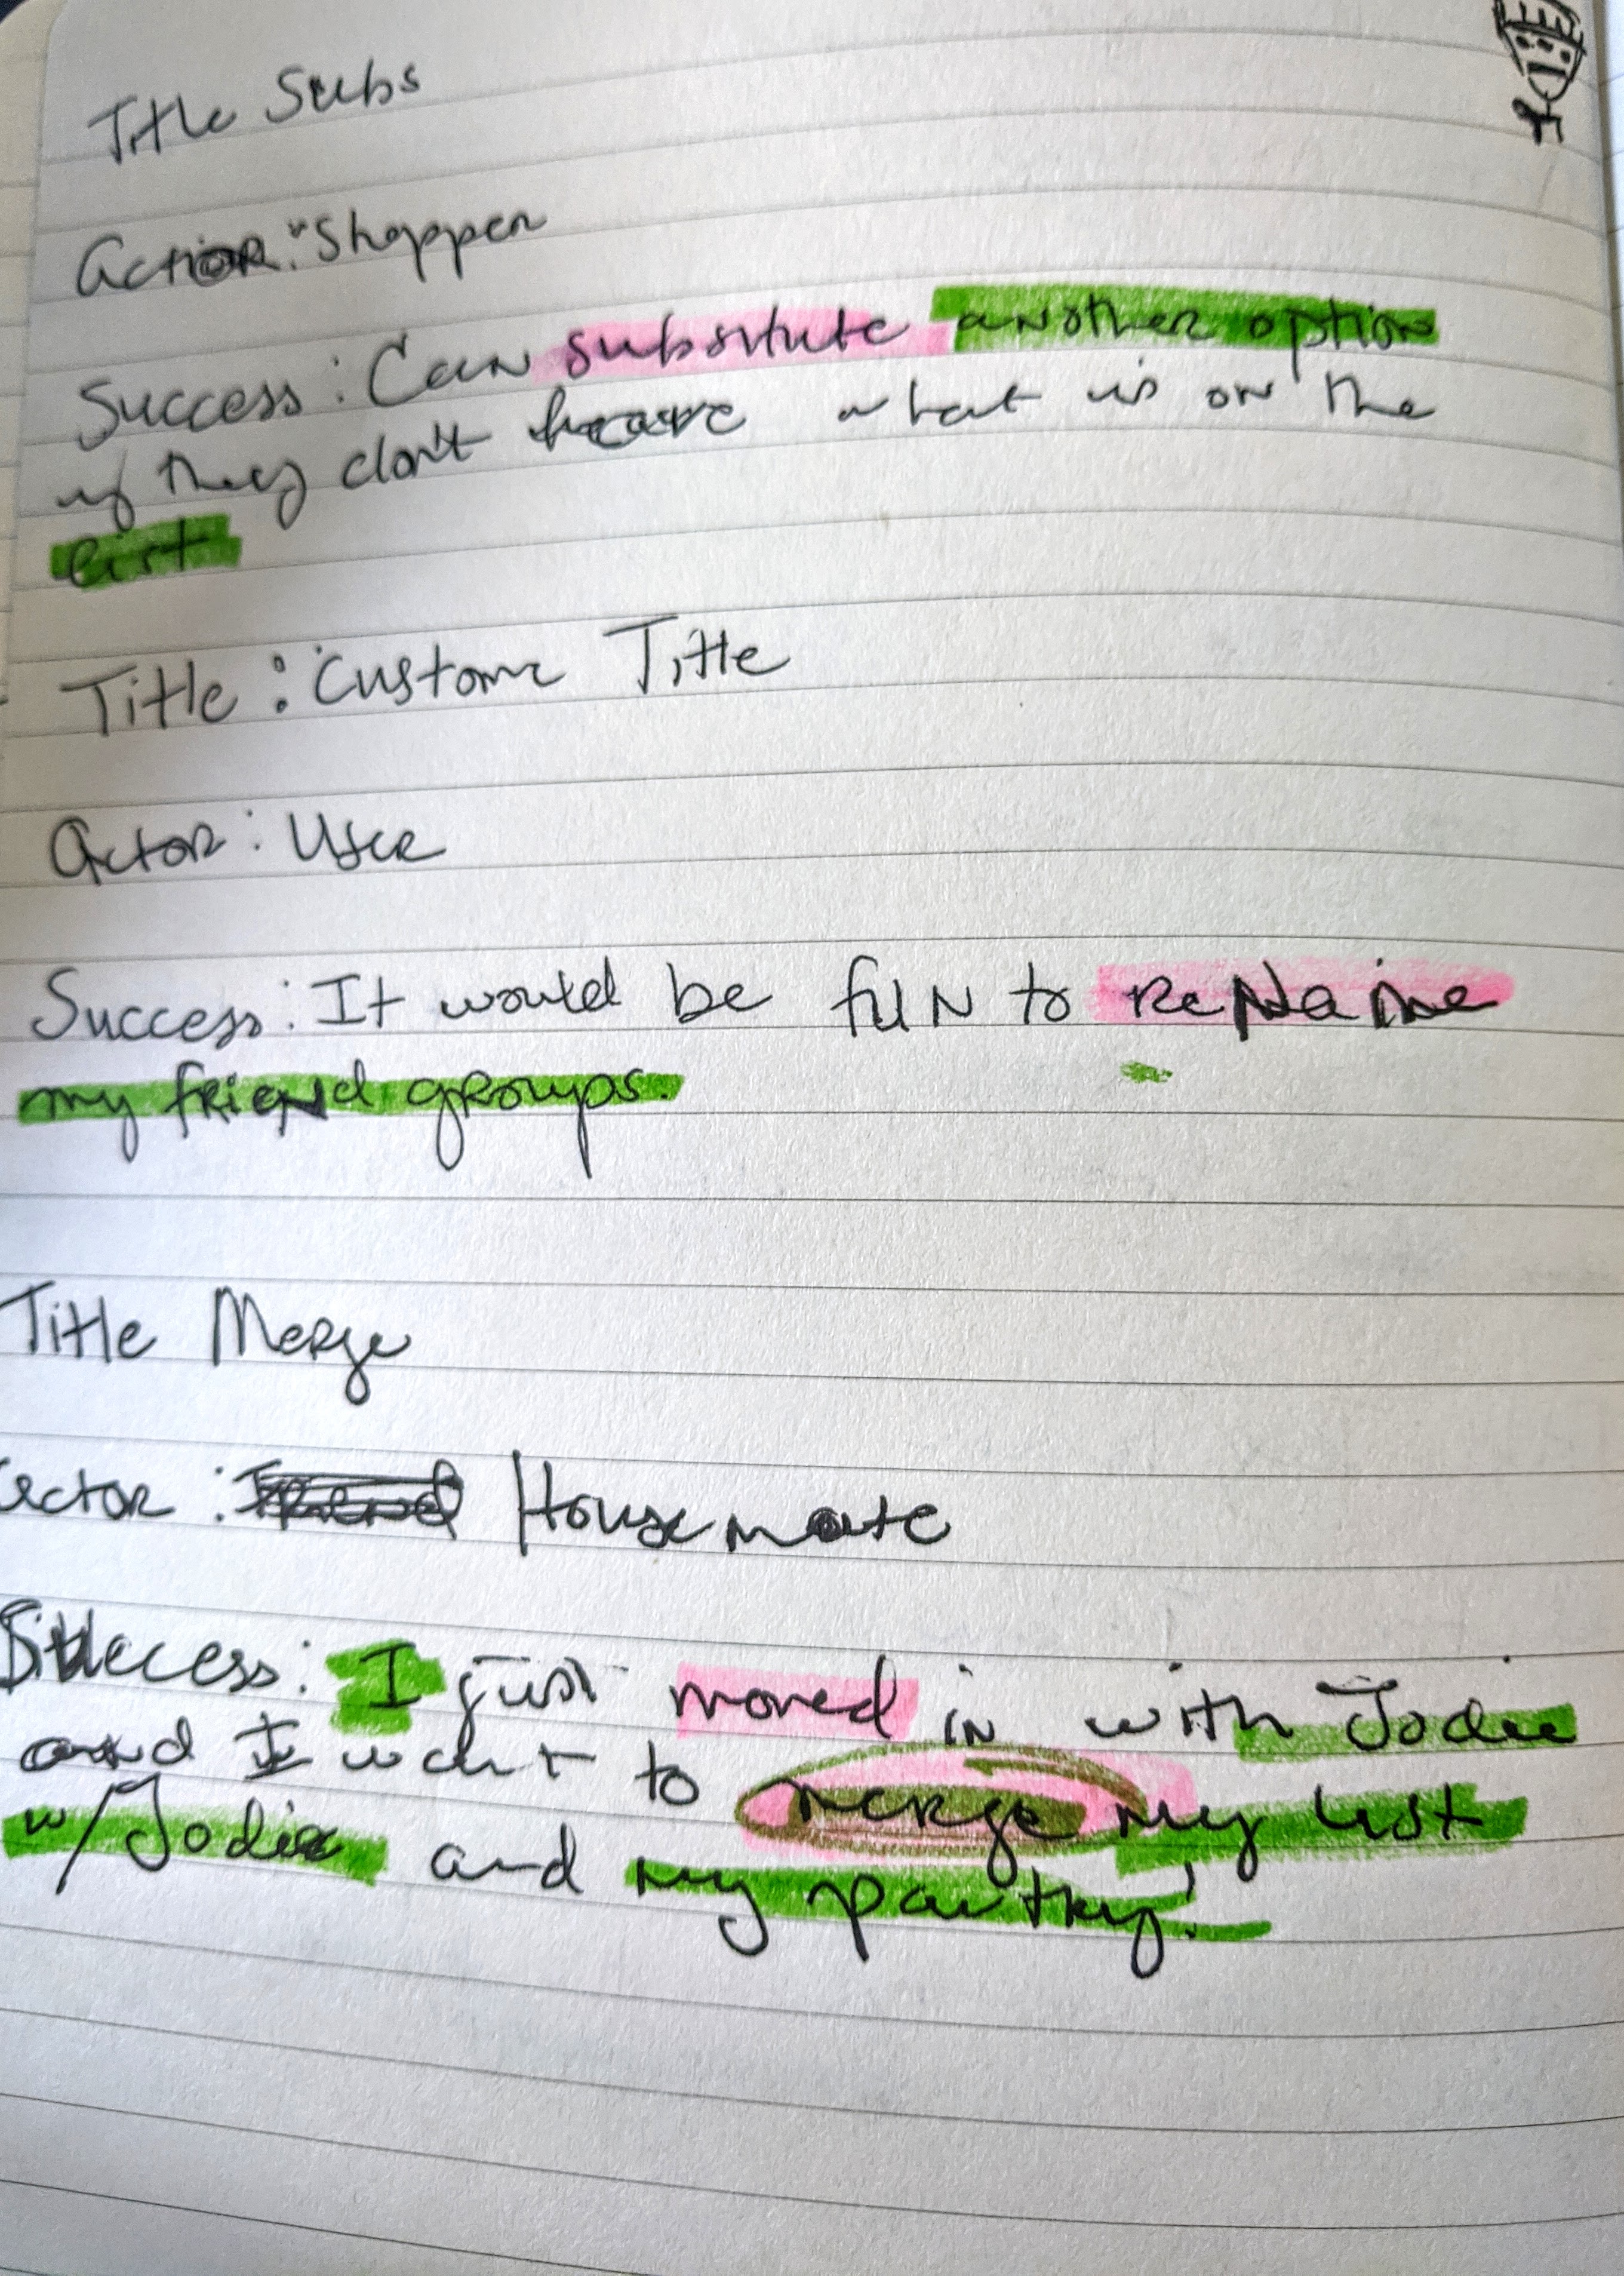 Title Subs
Actor: "Shopper
Success: Can substitute another option
if they don't have what is on the
list
Title: Custom Title
Actor: User
Success: It would be fun to rename
my friend groups.
Title Merge
actor: Friend Housemate
Success: I just moved in with Jodie
and I want to merge my list
w/Jodie and my panty!